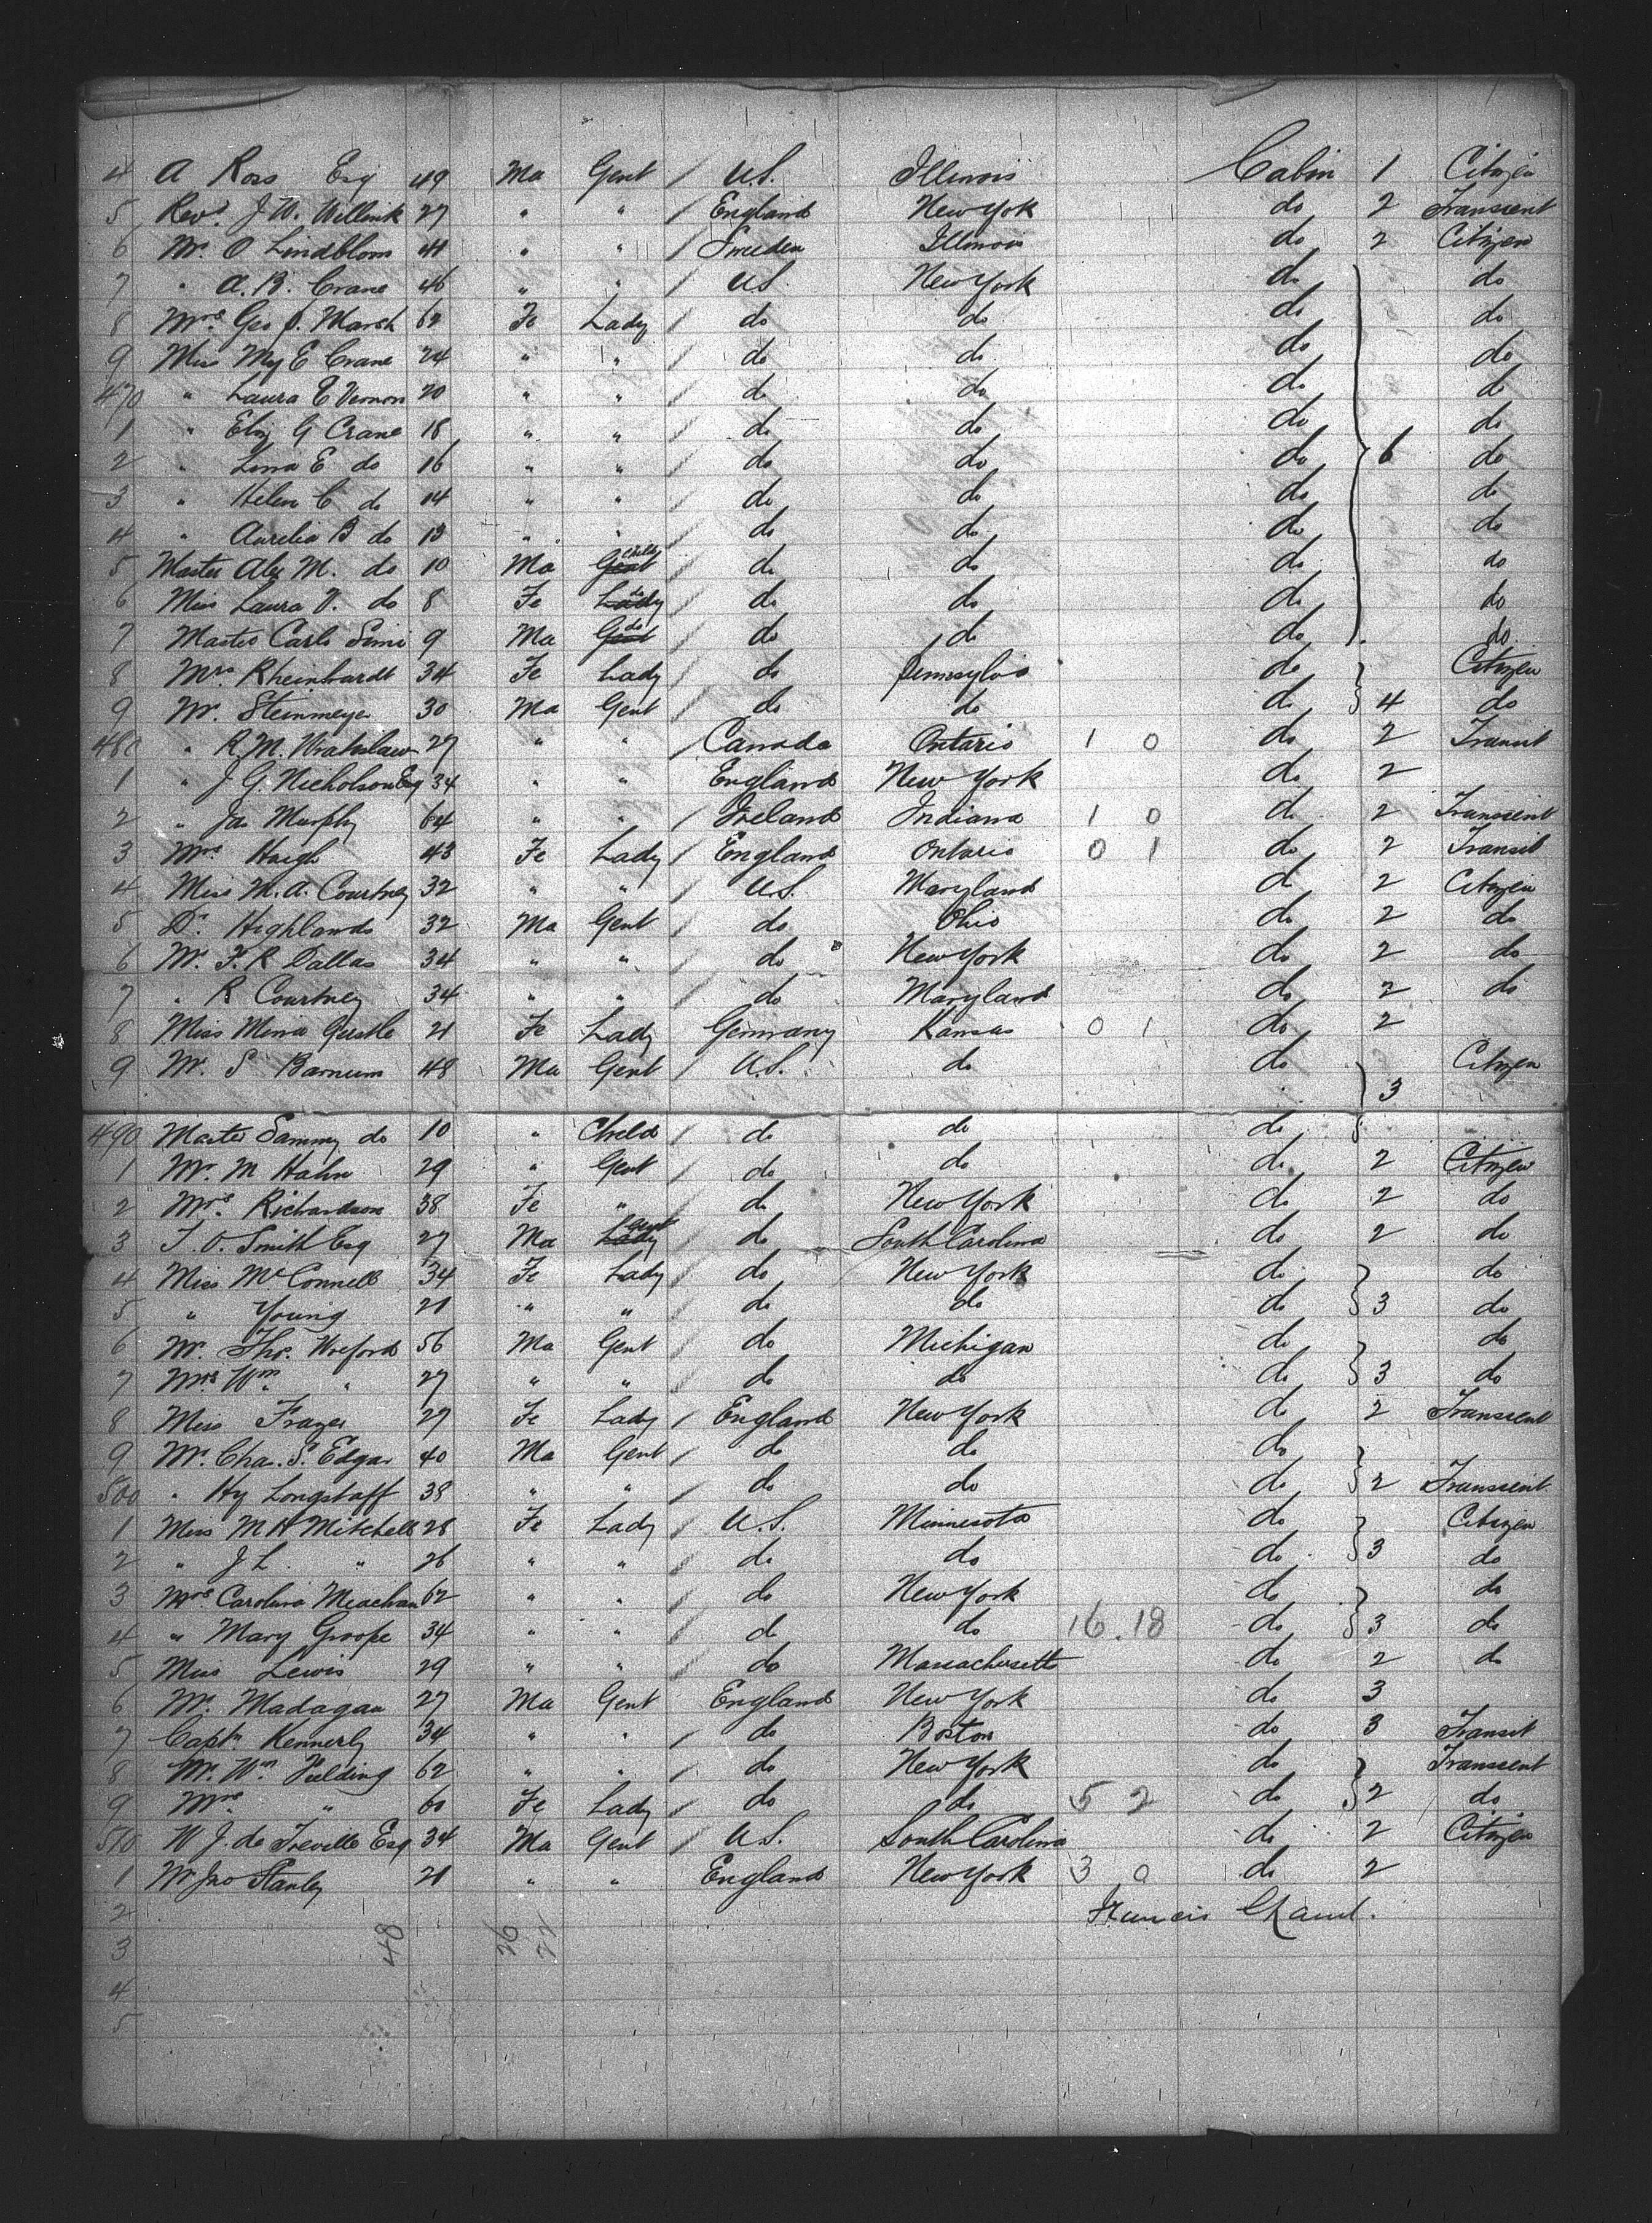 4 A Ross Esq 49 Ma Gent / U.S. Illinois Cabin 1 Citizen
5 Revd. J. W. Willink 27 " " / England New Yok do 2 Transient
6 Mr. O Lindblom 41 " " / Sweden Illinois do 2 Citizen
7 " A. B. Crane 46 " " / U.S. New York do do
8 Mrs. Geo J. Marsh 62 Fe Lady / do do do do
9 Miss My E Crane 24 " " / do do do do
470 " Laura E Vernon 20 " " / do do do do
1 " Eliz G Crane 18 " " / do do do do
2 " Lina E do 16 " " / do do do 6 do
3 " Helen C do 14 " " / do do do do
4 " Aurelia B do 13 " " / do do do do
5 Master Alex M. do 10 Ma Gent Child / do do do do
6 Miss Laura V. do 8 Fe Lady do / do do do do
7 Master Carlo 9 Ma Gent do / do do do do
8 Mrs Rheinhardt 34 Fe Lady / do Pennsylva do Citizen
9 Mr. Steinmeyer 30 Ma Gent / do do do 4 do
480 " R. M. Wratislaw 27 " " / Canada Ontario 1 0 do 2 Transit
1 " J. G. Nicholson Esq 34 " " England New York do 2
2 " Jas Murphy 64 " " / Ireland Indiana 1 0 do 2 Transient
3 Mrs Haigh 43 Fe Lady / England Ontario 0 1 do 2 Transit
4 Miss M. A. Courtney 32 " " / U.S. Maryland do 2 Citizen
5 Dr. Highlands 32 Ma Gent / do Ohio do 2 do
6 Mr. F. R Dallas 34 " " / do New York do 2 do
7 " R Courtney 34 " " / do Maryland do 2 do
8 Miss Minna 21 Fe Lady Germany Kansas 0 1 do 2
9 Mr. S Barnum 48 Ma Gent / U.S. do do Citizen
3
490 Master Sammy do 10 " Child / do do do
1 Mr. M Hahn 29 " Gent / do do do 2 Citizen
2 Mrs. Richardson 38 Fe " / do New York do 2 do
3 J. O. Smith Esq 27 Ma Lady Gent / do South Carolina do 2 do
4 Miss McConnell 34 Fe Lady / do New York do do
5 " Young 21 " " / do do do 3 do
6 Mr. Thos. Wreford 56 Ma Gent / do Michigan do do
7 Mrs Wm " 27 " " / do do do 3 do
8 Miss Frazer 27 Fe Lady / England New York do 2 Transient
9 Mr. Chas. S. Edgar 40 Ma Gent / do do do
500 " Hy Longstaff 38 " " / do do do 2 Transient
1 Miss M H Mitchell 28 Fe Lady / U.S. Minnesota do Citizen
2 " J L " 26 " " / do do do 3 do
3 Mrs. Carolina Meacham 62 " " / do New York do do
4 " Mary Groope 34 " " / do do 16.18 do 3 do
5 Miss Lewis 29 " " / do Massachusetts do 2 do
6 Mr. Madagan 27 Ma Gent England New York do 3
7 Captn Kennerly 34 " " / do Boston do 3 Transit
8 Mr. Wm. Fielding 62 " " / do New York do Transient
9 Mrs " 60 Fe Lady / do do 5 2 do 2 do
510 W J. de Treville Esq 34 Ma Gent / U.S. South Carolina do 2 Citizen
1 Mr Jno Stanley 21 " " England New York 3 0 do 2
2 Francis
3 48 26
4
5